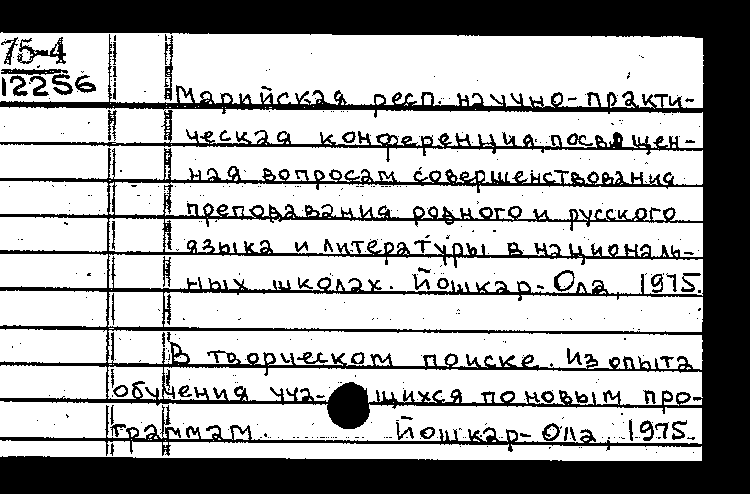 75-4
12256
Марийская респ. научно-практи-
ческая конференция, посвящен-
ная вопросам совершенствования
преподавания родного и русского
языка и литературы в националь-
ных школах. Йошкар-Ола, 1975.
В творческом поиске. Из опыта
обучения уча- щихся по новым про-
граммам. Йошкар-Ола, 1975.